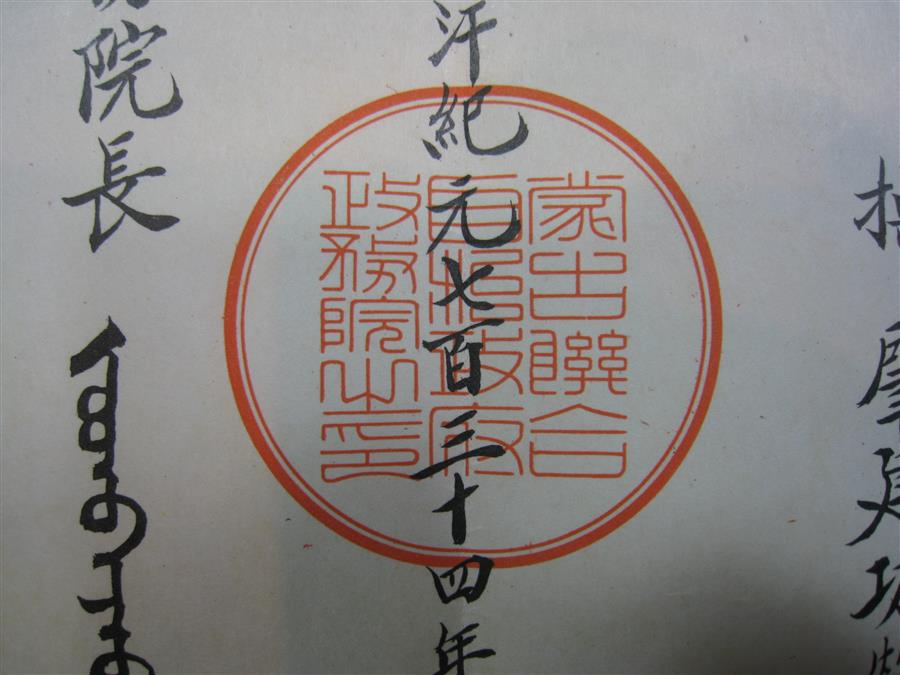 肇建功
汗紀元七百三十四年
蒙古聯合
自治政府
政務院之印
院長